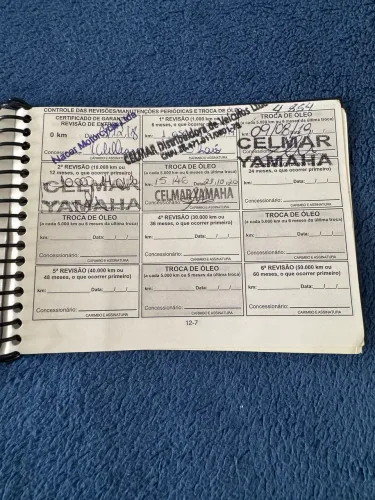 CONTROLE DAS REVISÕES/MANUTENÇÕES PERIÓDICAS E TROCA DE ÓLEO
CERTIFICADO DE GARANTIA
REVISÃO DE ENTREGA
0 km
Concessionário:
CARIMBO E ASSINATURA
Nacar Motorcycle Ltda
1ª REVISÃO (1.000 km ou
6 meses, o que ocorrer primeiro)
CELMAR Distribuidora de Veículos Ltda
CARIMBO E ASSINATURA
TROCA DE ÓLEO
(a cada 5.000 km ou 6 meses da última troca)
4.864
09/08/19
CELMAR
YAMAHA
2ª REVISÃO (10.000 km ou
12 meses, o que ocorrer primeiro)
CELMAR
YAMAHA
TROCA DE ÓLEO
(a cada 5.000 km ou 6 meses da última troca)
km: 15.146 Data: 21.10.20
CELMAR YAMAHA
CARIMBO E ASSINATURA
24 meses, o que ocorrer primeiro)
km: Data: / /
Concessionário:
CARIMBO E ASSINATURA
TROCA DE ÓLEO
(a cada 5.000 km ou 6 meses da última troca)
km: Data: / /
Concessionário:
CARIMBO E ASSINATURA
4ª REVISÃO (30.000 km ou
36 meses, o que ocorrer primeiro)
km: Data: / /
Concessionário:
CARIMBO E ASSINATURA
TROCA DE ÓLEO
(a cada 5.000 km ou 6 meses da última troca)
km: Data: / /
Concessionário:
CARIMBO E ASSINATURA
5ª REVISÃO (40.000 km ou
48 meses, o que ocorrer primeiro)
km: Data: / /
Concessionário:
CARIMBO E ASSINATURA
TROCA DE ÓLEO
(a cada 5.000 km ou 6 meses da última troca)
km: Data: / /
Concessionário:
CARIMBO E ASSINATURA
6ª REVISÃO (50.000 km ou
60 meses, o que ocorrer primeiro)
km: Data: / /
Concessionário:
CARIMBO E ASSINATURA
12-7